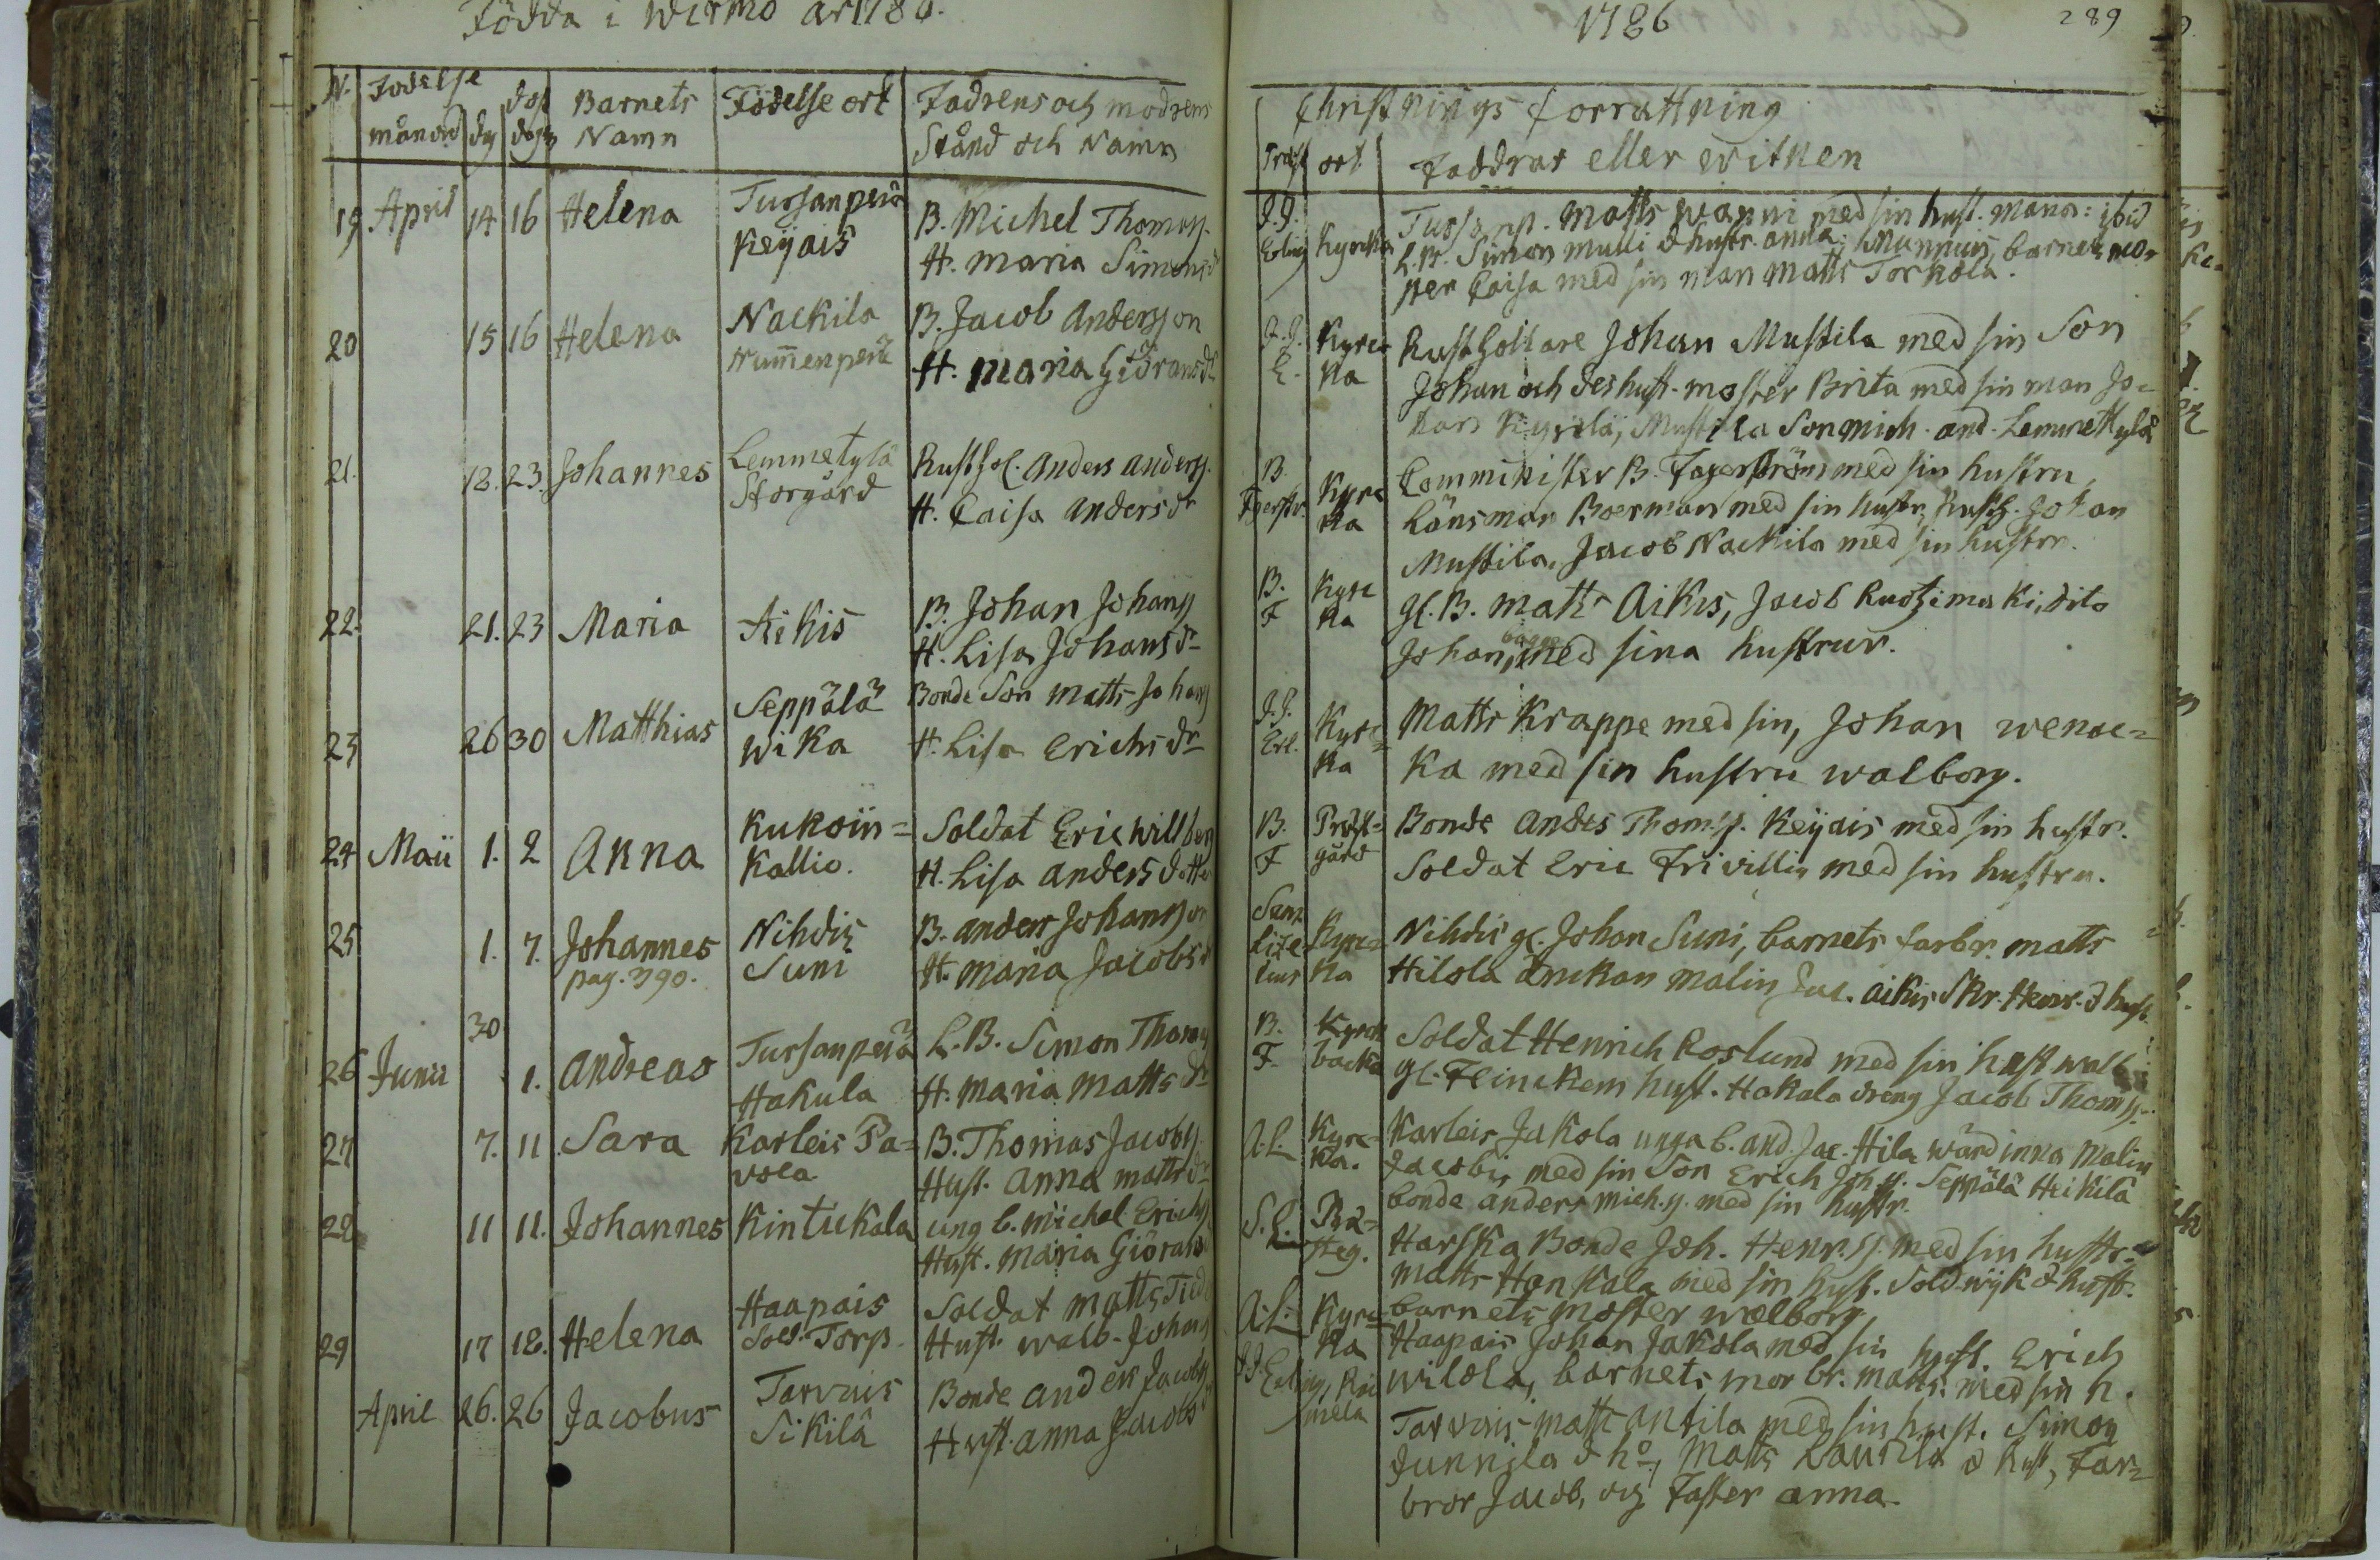 Födda i Wirmo år 1786.
N. Födelse månad dg dop dagn Barnets Namn Födelse ort Fadrens och modrens Stånd och Namn
19 April 14 16 Helena Tursanperä Keÿais B. Michel Thomass.
H. Maria Simonsd
20 15 16 Helena Nackila Num̅enperä B. Jacob Andersson
H. Maria Giöransdr
21. 18. 23. Johannes Lemmetylä Storgård Rusthol. Anders Anderss.
H. Caisa Andersdr
22. 21. 23 Maria Aikis B. Johan Johanss
H. Lisa Johansdr
23 26 30 Matthias Seppälä Wika Bonde Son Matts Johans
H. Lisa Erichsdr
24 Maii 1. 2 Anna Kukoin=
Kallio. Soldat Eric Willber
H. Lisa Andersdotter
25 1. 7. Johannes Nihdis Suni B. Anders Johansson
pag. 390. H. Maria Jacobsd
30
26 Junii 1. Andreas Tursanperä Hakula L.B. Simon Thomas
H. Maria Mattsdr
27 7. 11 Sara Karleis Pa=
vola B. Thomas Jacobs.
Hust. Anna Mattsdr
28 11 11. Johannes Kintukala ung b. Michel Erichs
Hust. Maria Giörans
29 17 18. Helena Haapais Sold. Torp. Soldat Matts
Hust. Walb. Johans
April 26. 26 Jacobus Tarvais Sikilä Bonde Anders Jacobs
Hust. Anna Jacobsd
1786
289
Christnings forrattning
ort Faddrar eller witnen
J.J. Kyrcka Matts Wanni med sin hust. : ibid
L.B. Simon Mulli & hustr. Anna, barnets mo=
ster Caisa med sin man Matts Torkola.
J.J.
E. Kyrc
ka Rusthollare Johan Mustila med sin Son
Johan och des hust. moster Brita med sin man Jo=
han Kyrölä, Mustila Son Mich. And. Lemmettylä
B. Kyrc
ka Comminister B. Fagerström med sin hustru,
Länsman Boerman med sin hustr, Rusth. Johan
Mustila, Jacob Nackila med sin hustru.
B.
F Kyrc
ka gl. B. Matts Aikis, Jacob Ruotzimäki, dito
Johan, bagge med sina hustrur.
J.J. Kyrc=
ka Matts Krappe med sin, Johan wenoe=
ka med sin hustru walborg.
B.
F Präst=
gård Bonde Anders Thomss. Keÿais med sin hustr.
Soldat Eric Frivillig med sin hustru.
Kyrc=
ka Nihdis gl. Johan Suni, barnets farbr. Matts
Hilola änckan Malin Jac. Aikis Skr. Henr. & hust.
B.
F. Kyrck
backa Soldat Henrich Roslund med sin hust walb
gl. hust. Hakala dreng Jacob Thomss.
A.L. Kyrc=
ka. Karleis Jakola unga b. And. Jac. Hila wärdinna Malin
Jacobi, med sin Son Erich Joh. s. Seppälä Heikilä
bonde Anders Mich. s. med sin hustr.
S.L. Harska Bonde Joh. Henr. s. med sin hustr.
Matts Hankala med sin hust. Sold. wijk & hust.
barnets moster walborg
A.L. Kyrc=
ka Haapais Johan Jakola med sin hust. Erich
wilola, barnets mor br. Matts med sin h.
J.J. Tarvais Matts Antila med sin hust. Simon
Junnila & ho, Matts Laurila & hust, Far=
bror Jacob, och Faster Anna.